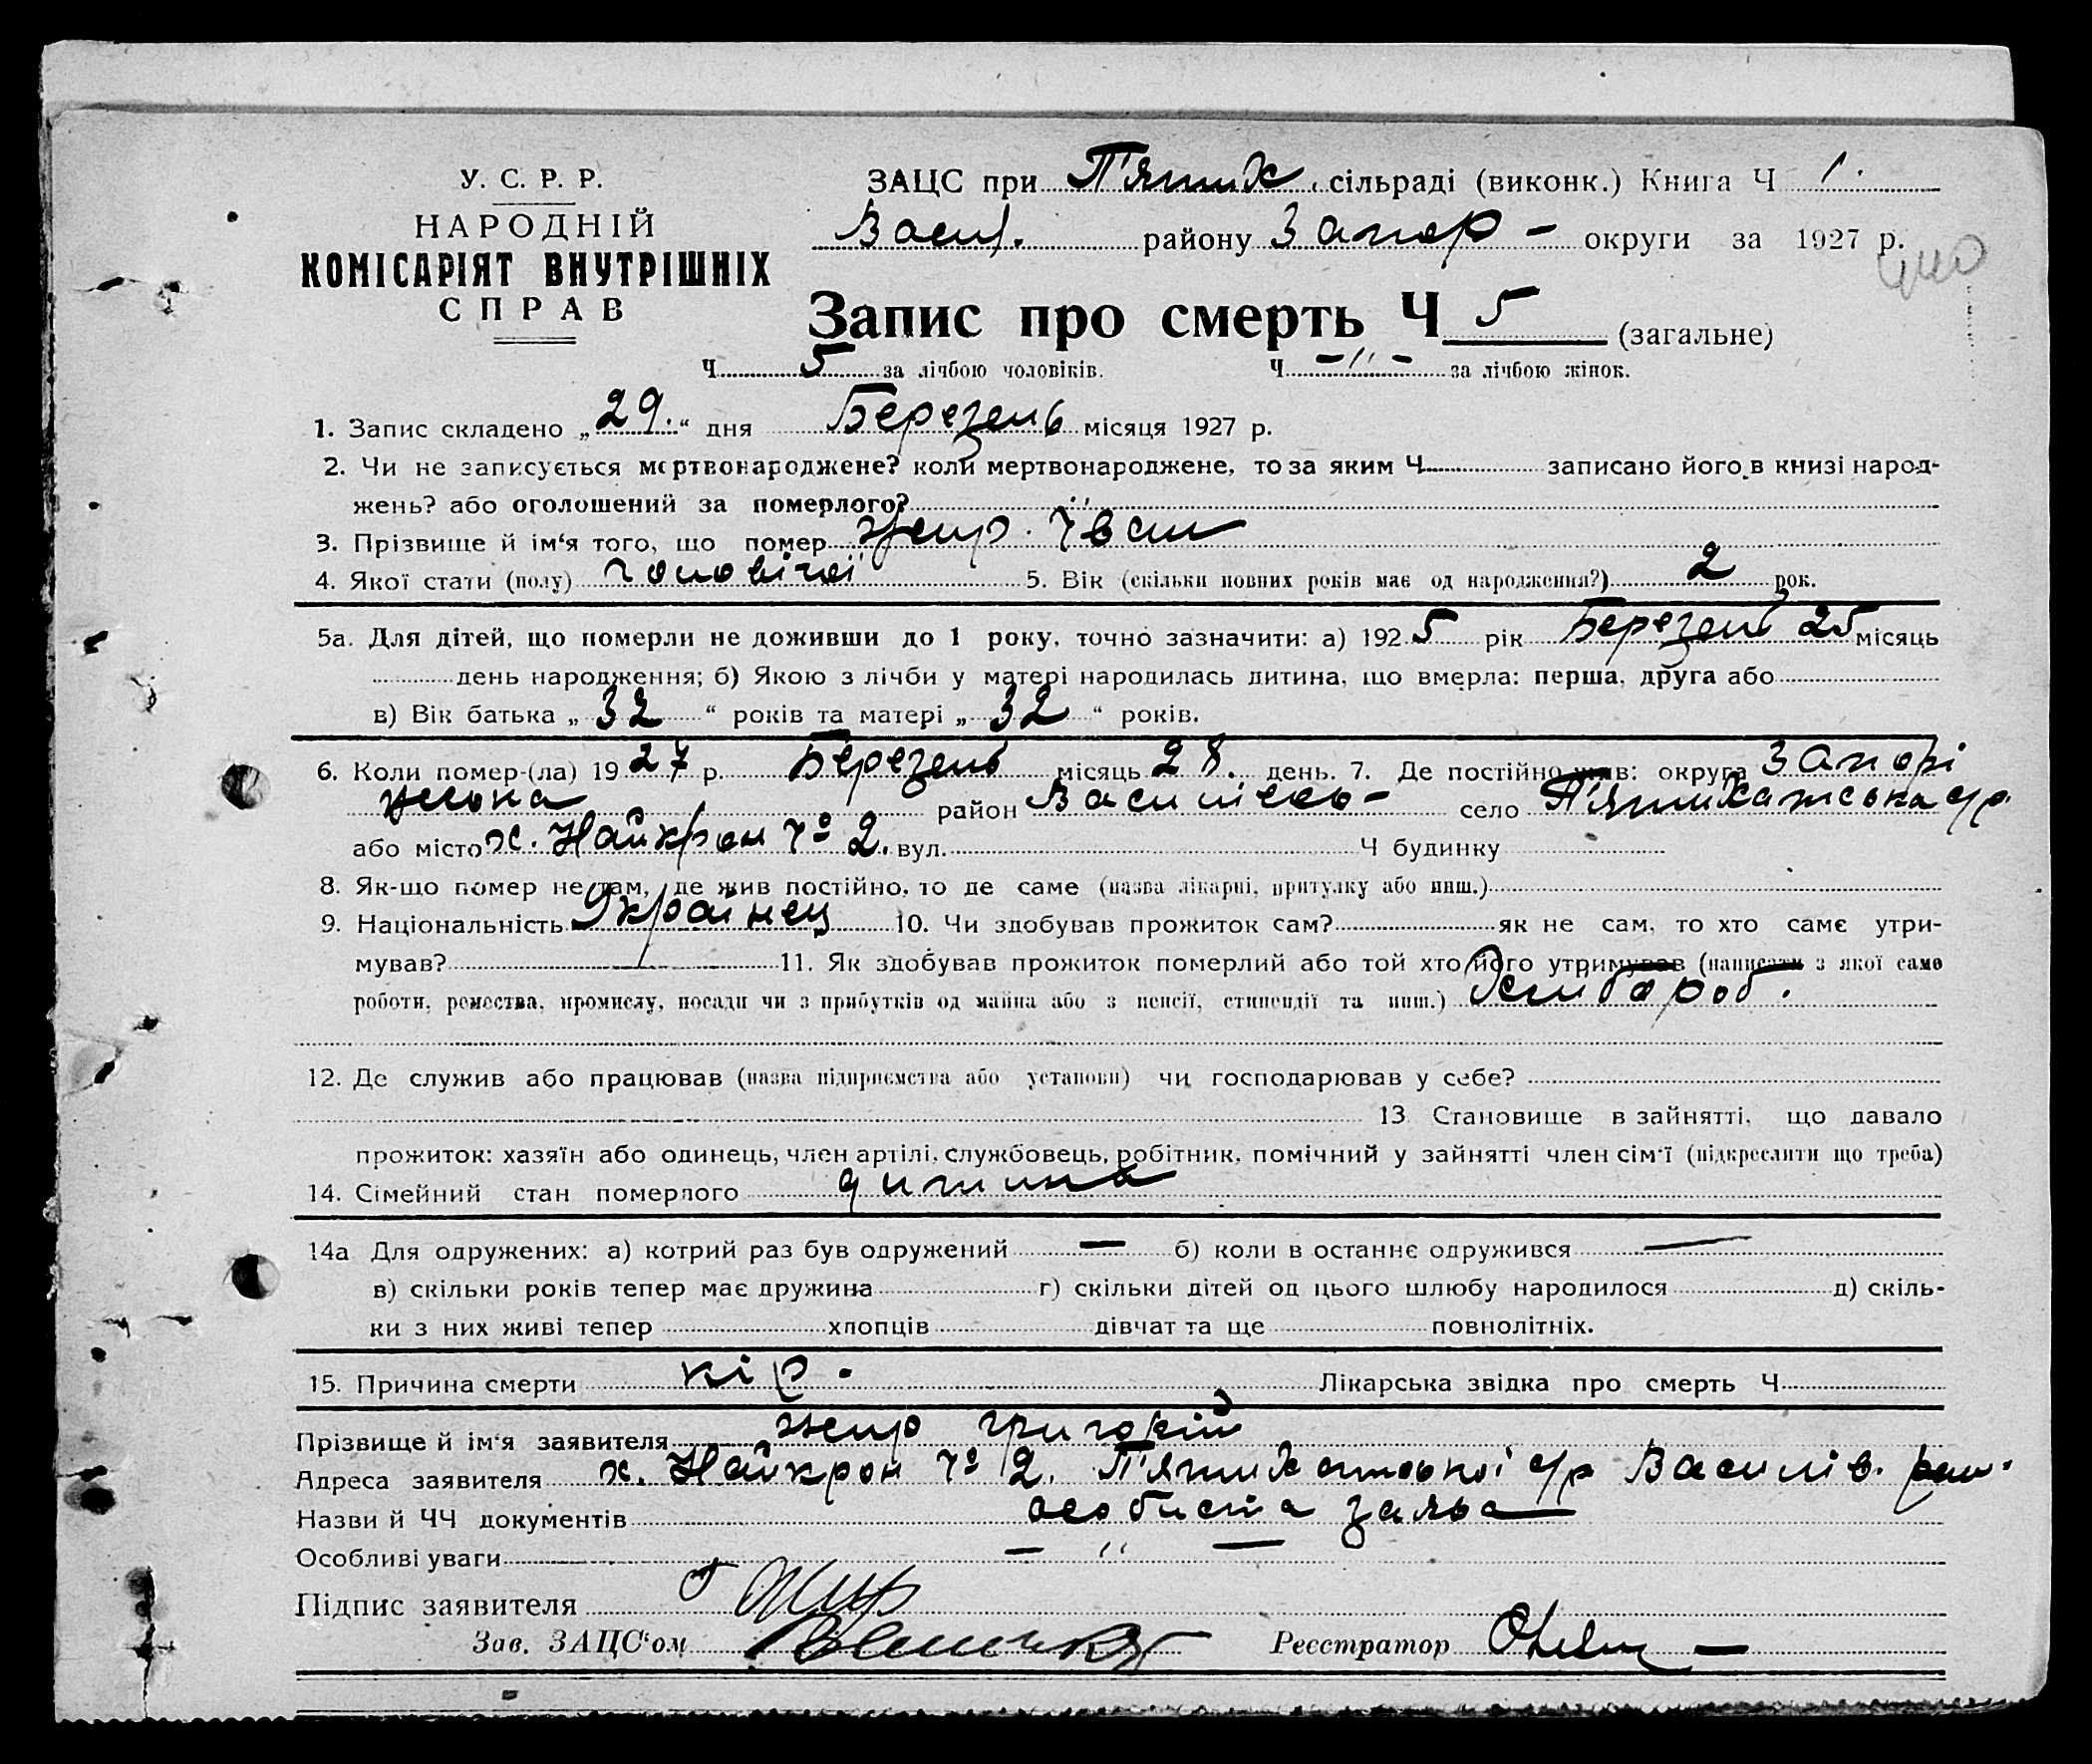 У. С. Р. Р.
НАРОДНІЙ
КОМІСАРІЯТ ВНУТРІШНІХ
СПРАВ
ЗАЦС при П'ятих. сільраді (виконк.) Книга Ч 1.
Васил. району Запор - округи за 1927 р.
Запис про смерть Ч 5 (загальне)
Ч 5 за лічбою чоловіків. Ч -"- за лічбою жінок.
1. Запис складено „29.“ дня Березень місяця 1927 р.
2. Чи не записується мертвонароджене? коли мертвонароджене, то за яким Ч записано його в книзі народ-
жень? або оголошений за померлого?
3. Прізвище й ім'я того, що помер Жир Іван
4. Якої стати (полу) чоловічої 5. Вік (скільки повних років має од народження?) 2 рок.
5а. Для дітей, що померли не доживши до 1 року, точно зазначити: а) 1925 рік Березень 25 місяць
день народження; б) Якою з лічби у матері народилась дитина, що вмерла: перша, друга або
в) Вік батька „32“ років та матері „32“ років.
6. Коли помер-(ла) 1927 р. Березень місяць 28. день. 7. Де постійно жив: округа Запорі
жська район Василівсь- село П'ятихатська с/р.
або місто х. Найкрон № 2. вул. Ч будинку
8. Як-що помер не там, де жив постійно, то де саме (назва лікарні, притулку або инш.)
9. Національність Українец 10. Чи здобував прожиток сам? як не сам, то хто саме утри-
мував? 11. Як здобував прожиток померлий або той хто його утримував (написати з якої саме
роботи, ремества, промислу, посади чи з прибутків од майна або з пенсії, стипендії та инш.) Хлибороб.
12. Де служив або працював (назва підприємства або установи) чи господарював у себе?
13 Становище в зайнятті, що давало
прожиток: хазяїн або одинець, член артілі, службовець, робітник, помічний у зайнятті член сім'ї (підкреслити що треба)
14. Сімейний стан померлого дитина
14а Для одружених: а) котрий раз був одружений — б) коли в останнє одружився —
в) скільки років тепер має дружина г) скільки дітей од цього шлюбу народилося д) скіль-
ки з них живі тепер хлопців дівчат та ще повнолітніх.
15. Причина смерти кір. Лікарська звідка про смерть Ч
Прізвище й ім'я заявителя Жир Григорій
Адреса заявителя х. Найкрон № 2. П'ятихатської с/р Василів. рай.
Назви й ЧЧ документів особиста заява
Особливі уваги — " —
Підпис заявителя Г Жир
Зав. ЗАЦС'ом Реєстратор